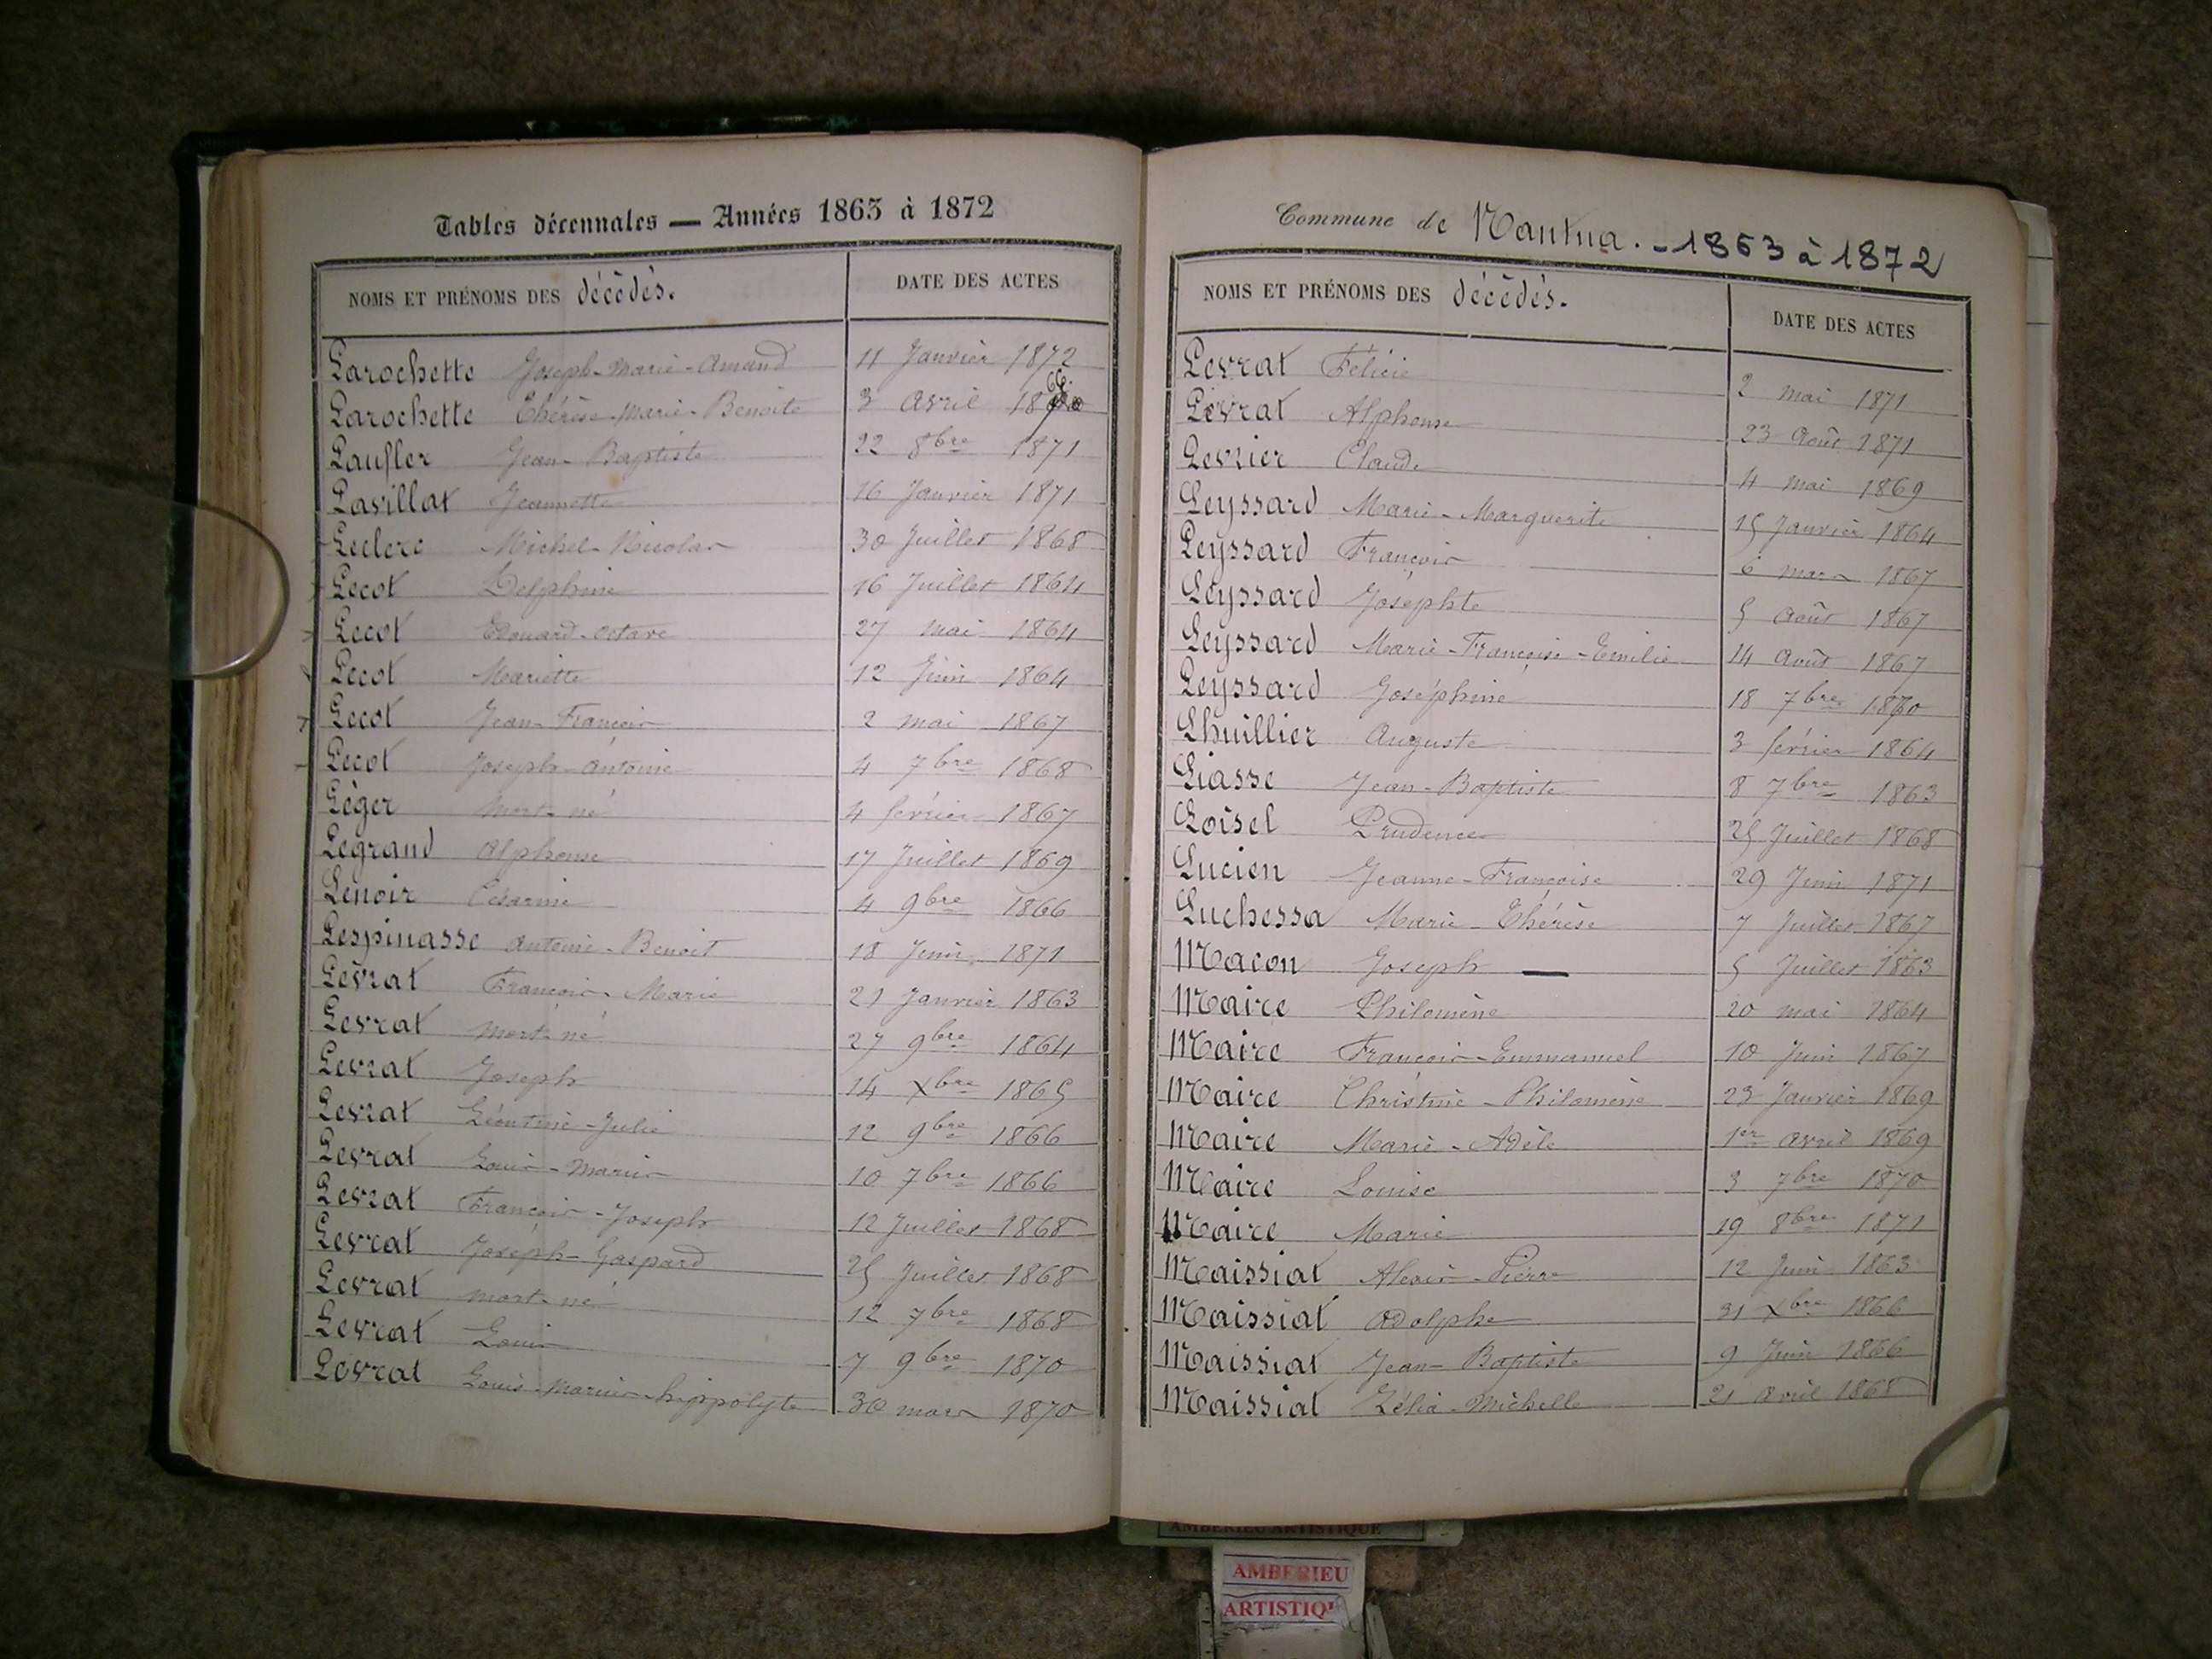 Tables décennales — Années 1863 à 1872
NOMS ET PRÉNOMS DES décédés. DATE DES ACTES
Larochette Joseph-Marie-Amand 11 Janvier 1872
Larochette Thérèse-Marie-Benoite 3 Avril 18
Laufler Jean-Baptiste 22 8bre 1871
Lavillat Jeannette 16 Janvier 1871
Leclerc Michel-Nicolas 30 Juillet 1868
Lecot Delphine 16 Juillet 1864
Lecot Edouard-Octave 27 mai 1864
Lecot Mariette 12 Juin 1864
Lecot Jean-François 2 mai 1867
Lecot Joseph-Antoine 4 7bre 1868
Léger mort-né 4 février 1867
Legrand Alphonse 17 Juillet 1869
Lenoir Césarine 4 9bre 1866
Lespinasse Antoine-Benoit 18 Juin 1871
Levrat François-Marie 21 Janvier 1863
Levrat mort-né 27 9bre 1864
Levrat Joseph 14 Xbre 1865
Levrat Léontine-Julie 12 9bre 1866
Levrat Louis-Marius 10 7bre 1866
Levrat François-Joseph 12 Juillet 1868
Levrat Joseph-Gaspard 25 Juillet 1868
Levrat mort-né 12 7bre 1868
Levrat Louis 7 9bre 1870
Levrat Louis-Marius-hippolyte 30 mars 1870
Commune de Nantua. - 1863 à 1872
NOMS ET PRÉNOMS DES décédés. DATE DES ACTES
Levrat Félicie 2 mai 1871
Levrat Alphonse 23 Août 1871
Levrier Claude 4 mai 1869
Leyssard Marie-Marguerite 15 Janvier 1864
Leyssard François 6 mars 1867
Leyssard Josephte 5 Août 1867
Leyssard Marie-Françoise-Emilie 14 Août 1867
Leyssard Joséphine 18 7bre 1870
Lhuillier Auguste 3 février 1864
Liasse Jean-Baptiste 8 7bre 1863
Loisel Prudence 25 Juillet 1868
Lucien Jeanne-Françoise 29 Juin 1871
Luchessa Marie-Thérèse 7 Juillet 1867
Macon Joseph — 5 Juillet 1863
Maire Philomène 20 mai 1864
Maire François-Emmanuel 10 Juin 1867
Maire Christine-Philomène 23 Janvier 1869
Maire Marie-Adèle 1er Avril 1869
Maire Louise 3 7bre 1870
Maire Marie 19 8bre 1871
Maissiat Alexis-Pierre 12 Juin 1863
Maissiat Adolphe 31 Xbre 1866
Maissiat Jean-Baptiste 9 Juin 1866
Maissiat Zélia-Michelle 21 Avril 1868
AMBERIEU ARTISTIQUE
AMBERIEU
ARTISTIQU